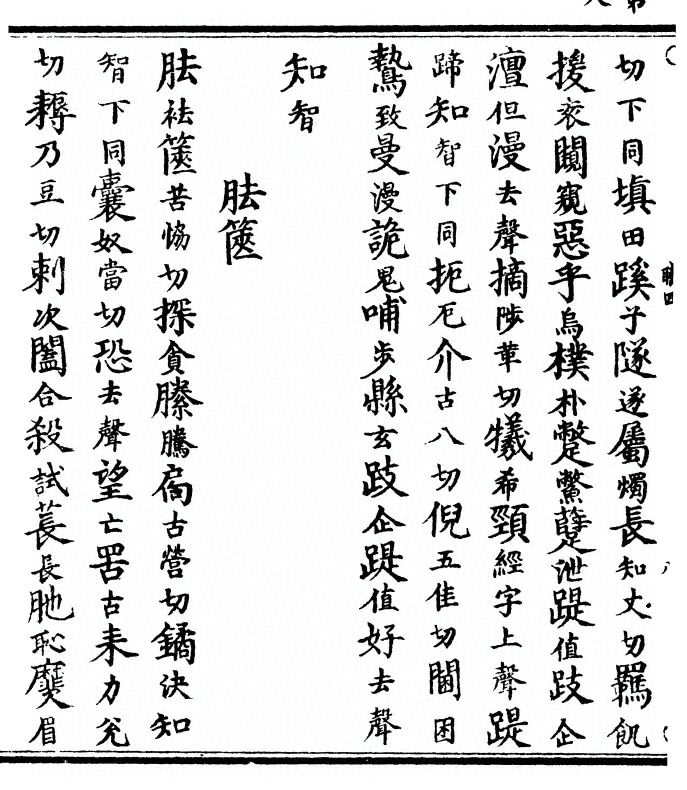 切下同填田蹊子隧遂屬燭長知丈切羈飢
援袁闚窺惡乎烏樸朴蹩鱉躠泄踶值跂企
澶但漫去聲摘陟革切犧希頸經字上聲踶
蹄知智下同扼厄介古八切倪五隹切闉因
鷙致曼漫詭鬼哺步縣玄跂企踶值好去聲
知智
胠篋
胠祛篋苦恊切探貪縢騰扃古營切鐍決知
智下同囊奴當切恐去聲望亡罟古耒力兊
切耨乃豆切刺次闔合殺試萇長胣恥麛眉